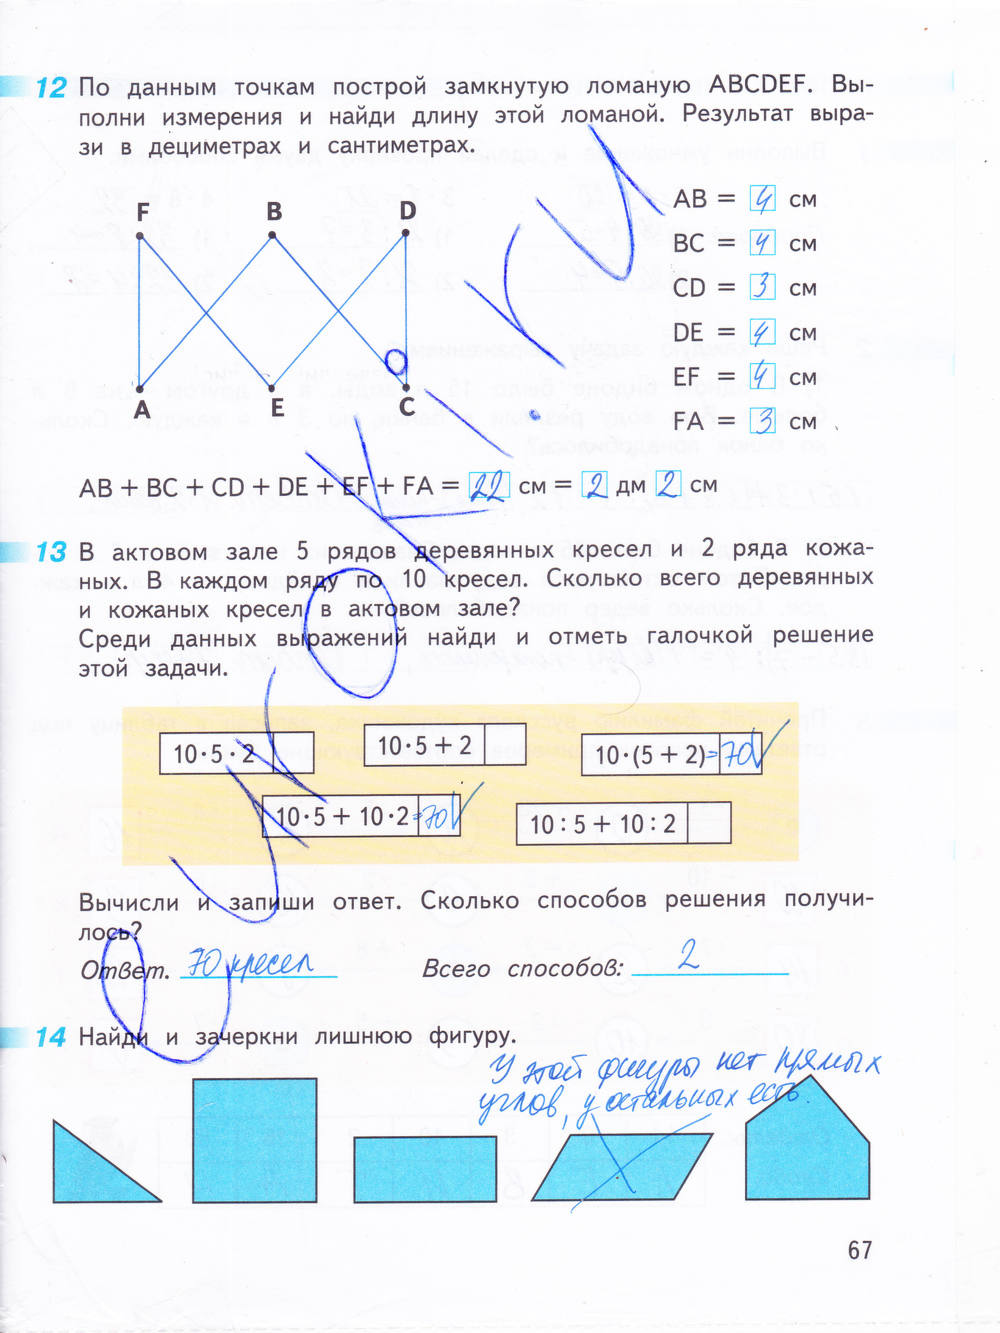 12 По данным точкам построй замкнутую ломаную ABCDEF. Вы-
полни измерения и найди длину этой ломаной. Результат выра-
зи в дециметрах и сантиметрах.
F B D
A E C
AB = 4 см
BC = 4 см
CD = 3 см
DE = 4 см
EF = 4 см
FA = 3 см
AB + BC + CD + DE + EF + FA = 22 см = 2 дм 2 см
13 В актовом зале 5 рядов деревянных кресел и 2 ряда кожа-
ных. В каждом ряду по 10 кресел. Сколько всего деревянных
и кожаных кресел в актовом зале?
Среди данных выражений найди и отметь галочкой решение
этой задачи.
10·5·2 10·5 + 2 10·(5 + 2) =70 √
10·5 + 10·2 =70 √ 10 : 5 + 10 : 2
Вычисли и запиши ответ. Сколько способов решения получи-
лось?
Ответ. 70 кресел Всего способов: 2
14 Найди и зачеркни лишнюю фигуру.
У этой фигуры нет прямых
углов, у остальных есть.
67